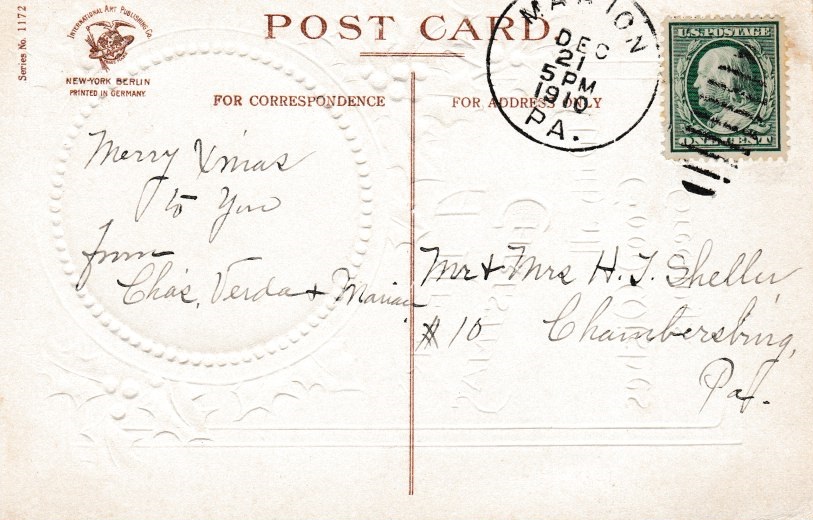 Series No. 1172
INTERNATIONAL ART PUBLISHING CO.
NEW-YORK BERLIN
PRINTED IN GERMANY.
POST CARD
FOR CORRESPONDENCE
FOR ADDRESS ONLY
MARION
DEC
21
5 PM
1910
PA.
U.S. POSTAGE
ONE CENT
Merry Xmas
to You
from
Chas, Verda + Marian
Mr + Mrs H. T. Sheller
# 10 Chambersburg,
Pa.